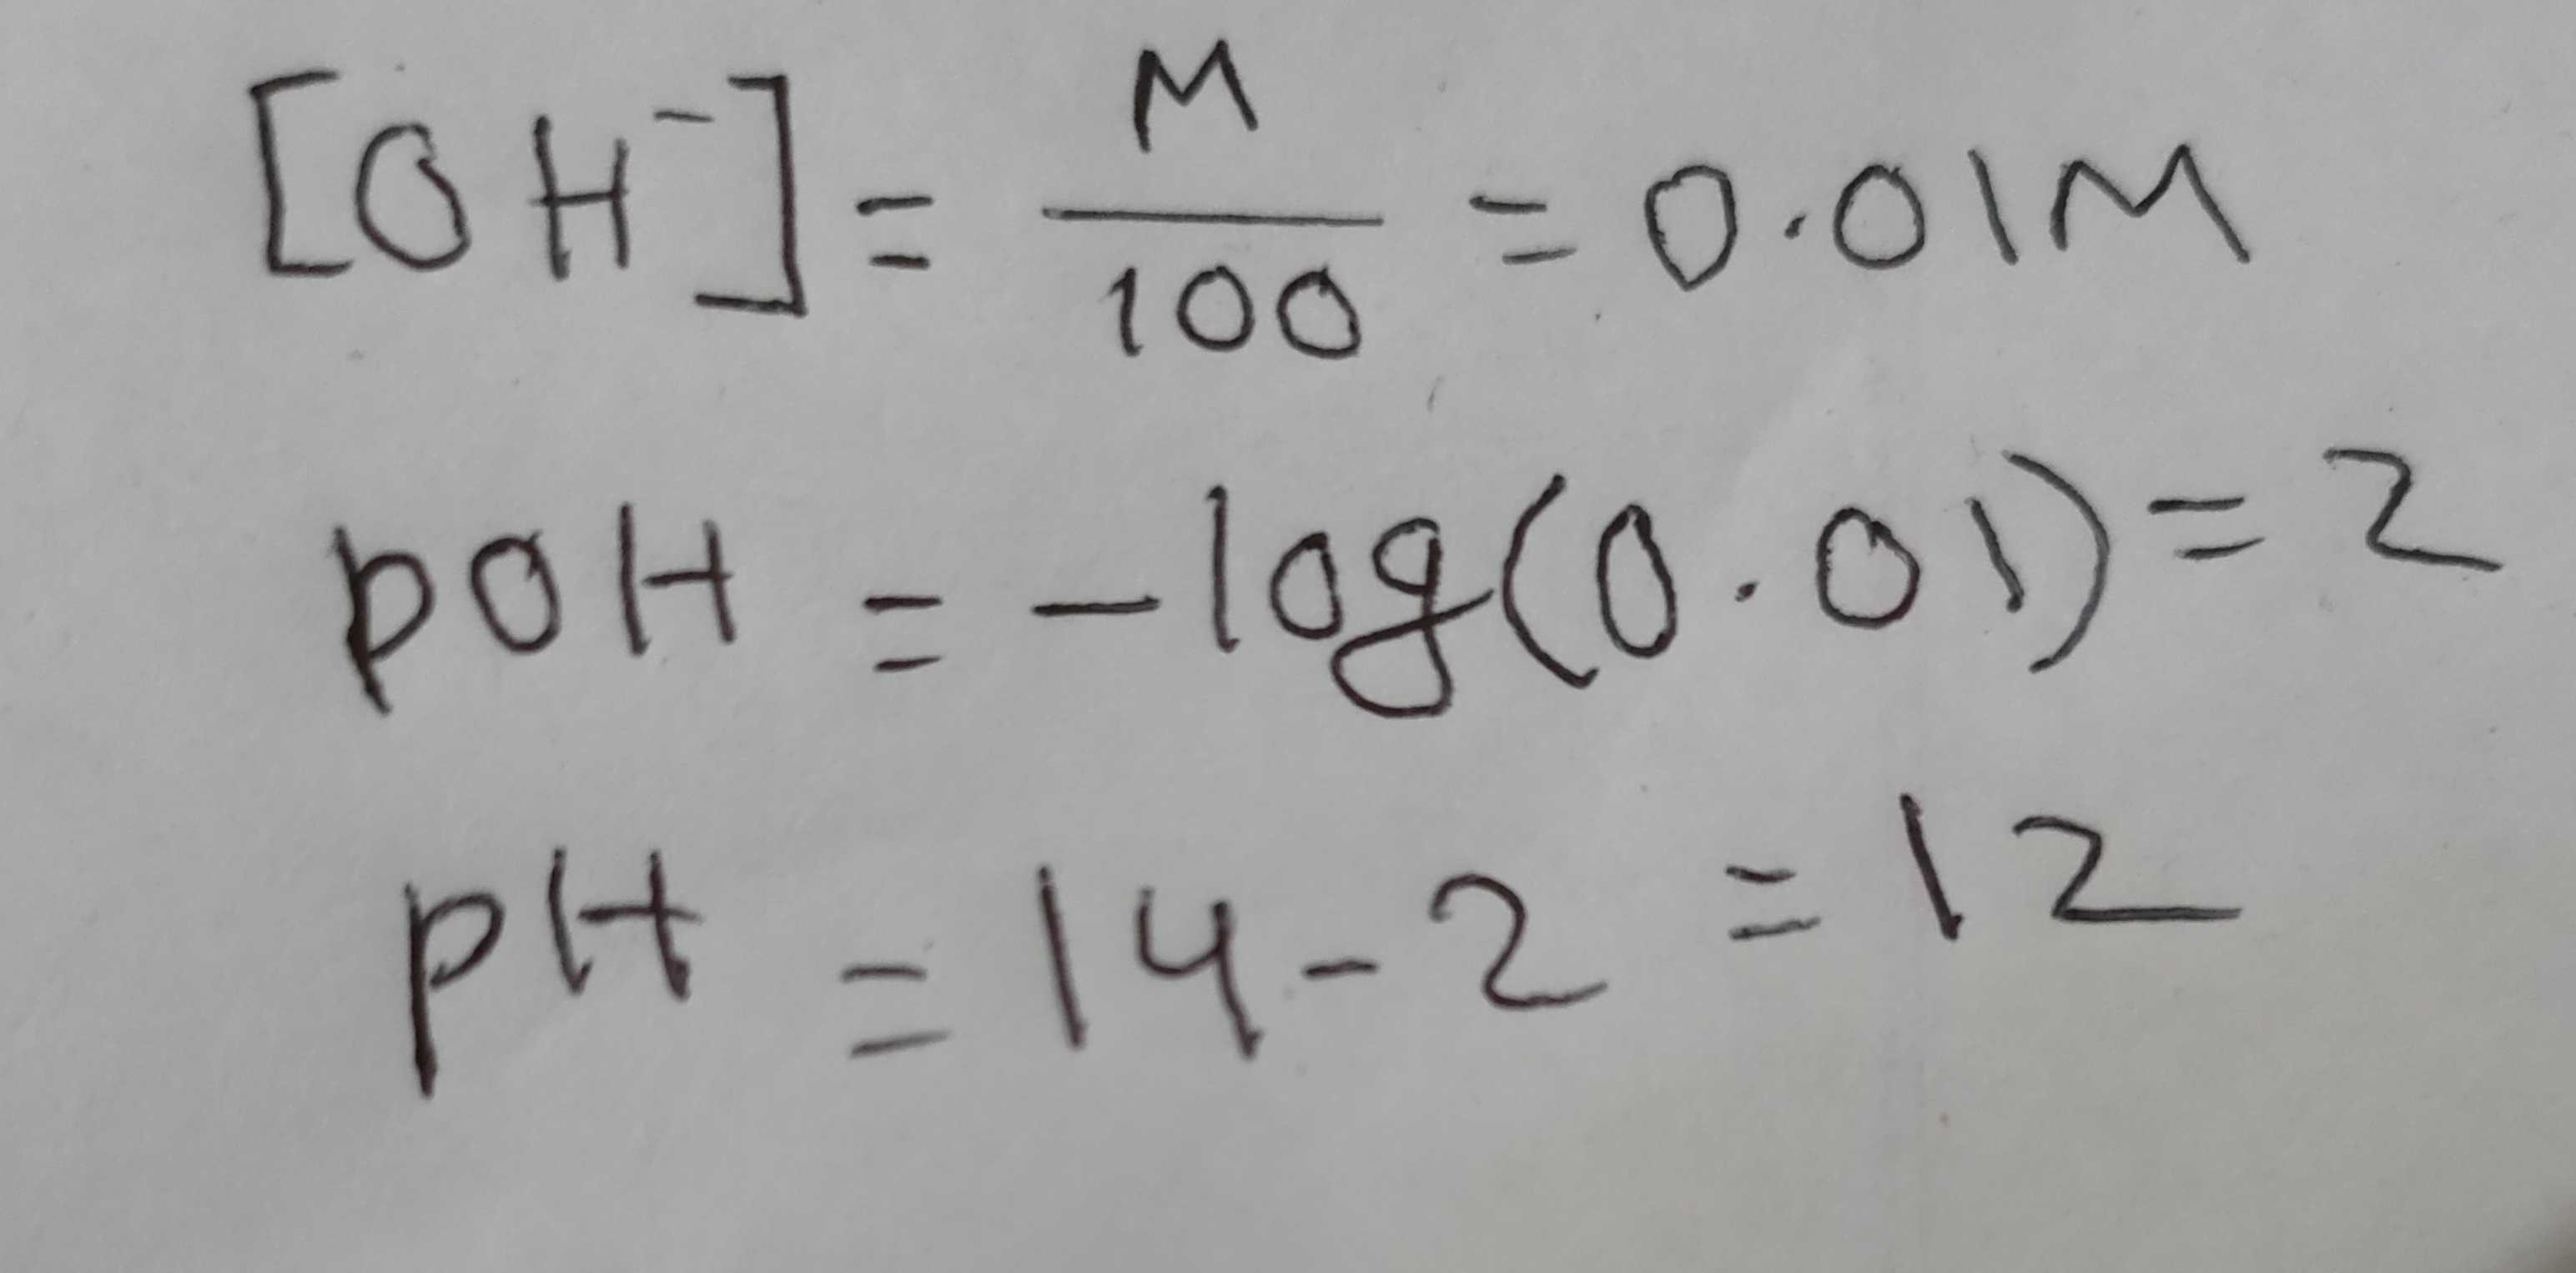 [OH⁻] = M/100 = 0.01M
pOH = -log(0.01) = 2
pH = 14-2 = 12